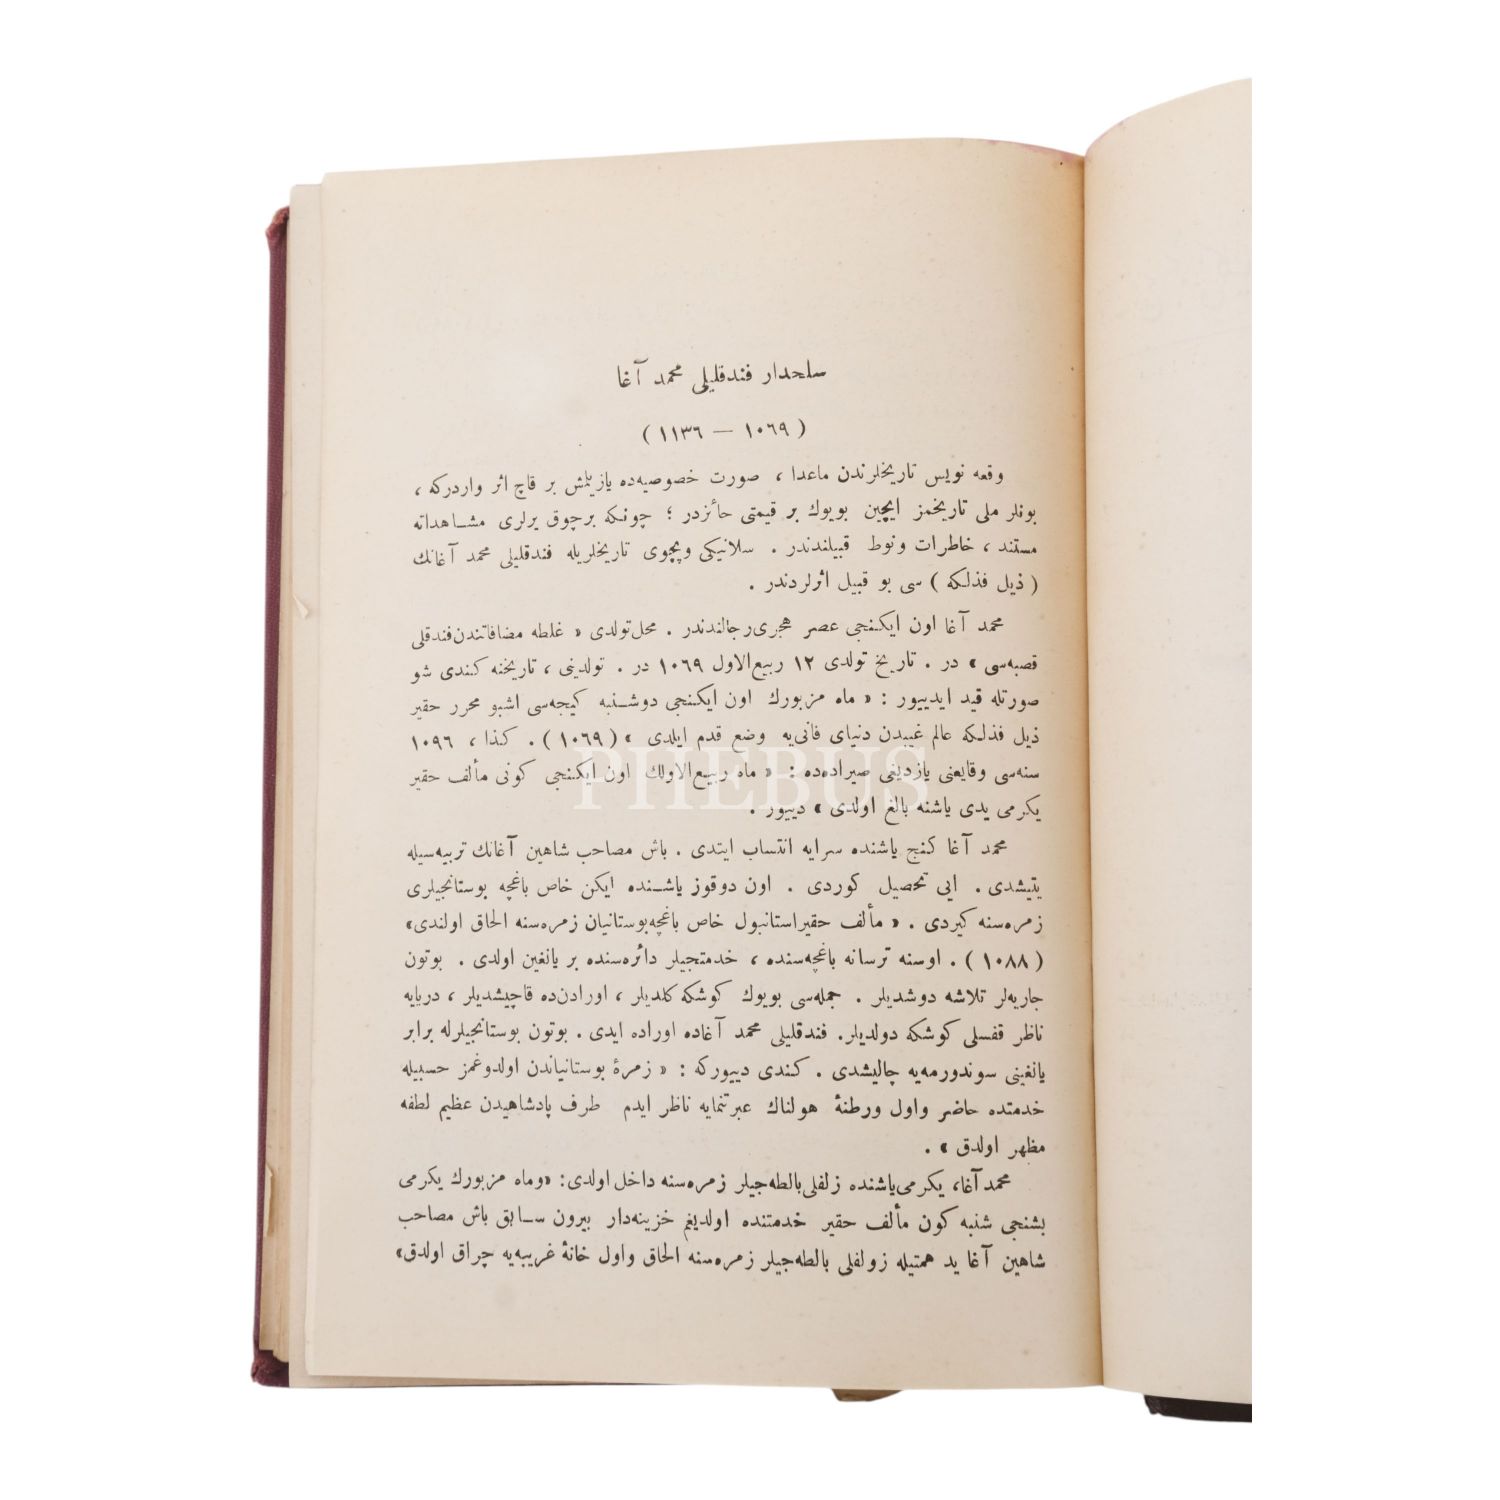 سلحدار فندقلیلی محمد آغا
( ١٠٦٩ — ١١٣٦ )
وقعه نویس تاریخلرندن ماعدا ، صورت خصوصیه‌ده یازیلمش بر قاچ اثر واردرکه ،
بونلر ملی تاریخمز ایچین بویوك بر قیمتی حائزدر ؛ چونکه برچوق یرلری مشـاهداته
مستند ، خاطرات ونوط قبیلندندر . سلانیکی وپچوی تاریخلریله فندقلیلی محمد آغانك
( ذیل فذلکه ) سی بو قبیل اثرلردندر .
محمد آغا اون ایکنجی عصر هجری‌رجالندندر . محل‌تولدی « غلطه مضافاتندن‌فندقلی
قصبه‌سی » در . تاریخ تولدی ١٢ ربیع‌الاول ١٠٦٩ در . تولدینی ، تاریخنه کندی شو
صورتله قید ایدییور : « ماه مزبورك اون ایکنجی دوشـنبه کیجه‌سی اشبو محرر حقیر
ذیل فذلکه عالم غیبدن دنیای فانی‌یه وضع قدم ایلدی » ( ١٠٦٩ ) . کذا ، ١٠٩٦
سنه‌سی وقایعنی یازدیغی صیراده‌ده : « ماه ربیع‌الاولك اون ایکنجی کونی مألف حقیر
یکرمی یدی یاشنه بالغ اولدی » دییور .
محمد آغا کنج یاشنده سرایه انتساب ایتدی . باش مصاحب شاهین آغانك تربیه‌سیله
یتیشدی . ایی تحصیل کوردی . اون دوقوز یاشـنده ایکن خاص باغچه بوستانجیلری
زمره‌سنه کیردی . « مألف حقیراستانبول خاص باغچه‌بوستانیان زمره‌سنه الحاق اولندی»
( ١٠٨٨ ) . اوسنه ترسانه باغچه‌سنده ، خدمتجیلر دائره‌سنده بر یانغین اولدی . بوتون
جاریه‌لر تلاشه دوشدیلر . جمله‌سی بویوك کوشکه کلدیلر ، اورادن‌ده قاچیشدیلر ، دریایه
ناظر قفسلی کوشکه دولدیلر. فندقلیلی محمد آغاده اوراده ایدی . بوتون بوستانجیلرله برابر
یانغینی سوندورمه‌یه چالیشدی . کندی دییورکه : « زمرهٔ بوستانیاندن اولدوغمز حسبیله
خدمتده حاضر واول ورطنهٔ هولناك عبرتنمایه ناظر ایدم طرف پادشاهیدن عظیم لطفه
مظهر اولدق » .
محمد آغا، یکرمی‌یاشنده زلفلی‌بالطه‌جیلر زمره‌سنه داخل‌اولدی: «وماه مزبورك یکرمی
بشنجی شنبه کون مألف حقیر خدمتنده اولدیغم خزینه‌دار بیرون سـابق باش مصاحب
شاهین آغا ید همتیله زولفلی بالطه‌جیلر زمره‌سنه الحاق واول خانهٔ غریبه‌یه چراق اولدق»
PHEBUS